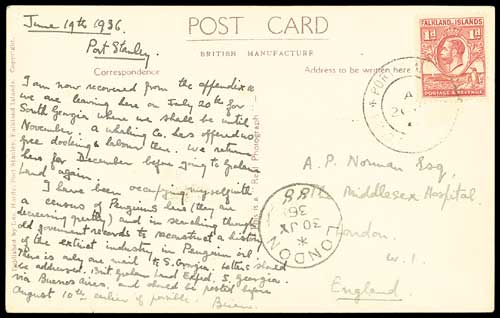 June 19th 1936.
Port Stanley.
POST CARD
BRITISH MANUFACTURE
Correspondence
Address to be written here
FALKLAND ISLANDS
1d 1d
POSTAGE & REVENUE
I am now recovered from the appendix &
we are leaving here on July 20th for
South Georgia where we shall be until
November. A whaling Co. has offered us
free docking & labour there. We return
here for December before going to Graham
Land again.
I have been occupying myself with
a census of Penguins here (they are
decreasing greatly) and in searching through
old government records to reconstruct a history
of the extinct industry in Penguin oil.
There is only one mail to S. Georgia. Letters should
be addressed. Brit Graham Land Exped. S. Georgia.
via Buenos Aires, and should be posted before
August 10th earlier if possible.
A.P. Norman Esq.
Middlesex Hospital.
London.
W.1.
England.
LONDON
30 JY
36
88
Real Photograph